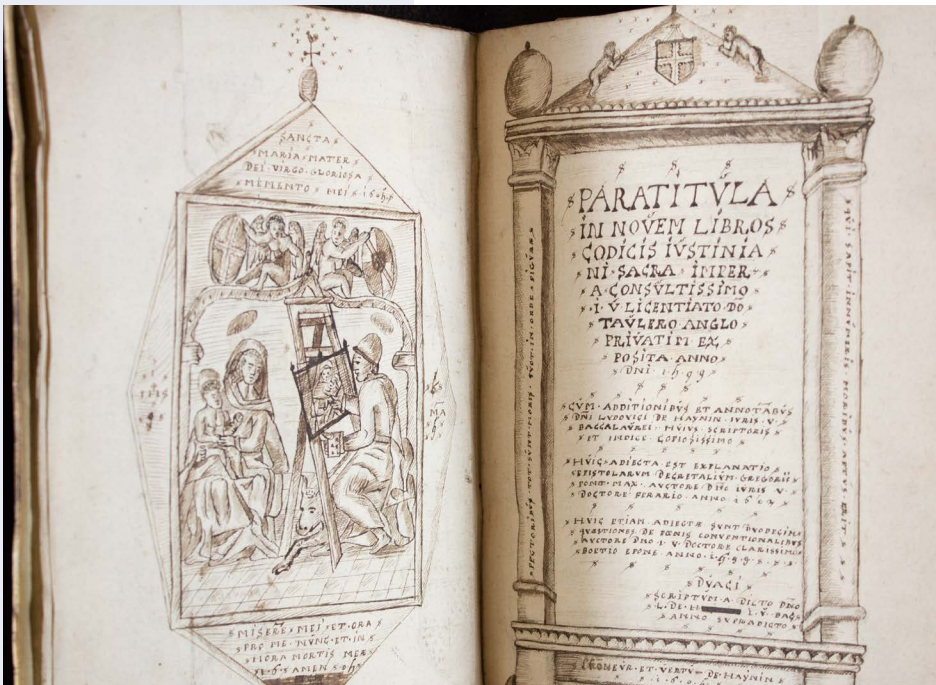 SANCTA
MARIA MATER
DEI VIRGO GLORIOSA
MEMENTO MEI
MISERE MEI ET ORA
PRO ME NUNC ET IN
HORA MORTIS MEÆ
AMEN
PARATITVLA
IN NOVEM LIBROS
CODICIS IVSTINIA
NI SACRA IMPER
A CONSVLTISSIMO
I V LICENTIATO DÑO
TAVLERO ANGLO
PRIVATIM EX
POSITA ANNO
DNI 1599
CVM ADDITIONIBVS ET ANNOTÃBVS
DÑI LVDOVICI DE HAYNIN IVRIS V
BACCALAVREI HVIVS SCRIPTORIS
ET INDICE COPIOSISSIMO
HVIC ADIECTA EST EXPLANATIO
EPISTOLARVM DECRETALIVM GREGORII
PONT MAX AVCTORE DÑO IVRIS V
DOCTORE FERARIO ANNO
HVIC ETIAM ADIECTÆ SVNT DVODECIM
QVÆSTIONES DE POENIS CONVENTIONALIBVS
AVCTORE DNO I V DOCTORE CLARISSIMO
BOETIO EPONE ANNO 1599
DVACI
SCRIPTVM A DICTO DNO
L DE H I V BAC
ANNO SVPRADICTO
PECTORIBVS TOT SVNT MORES QVOT IN ORBE FIGVRÆ
QVI SAPIT INNVMERIS MORIBVS APTVS ERIT
HONEVR ET VERTV DE HAYNIN